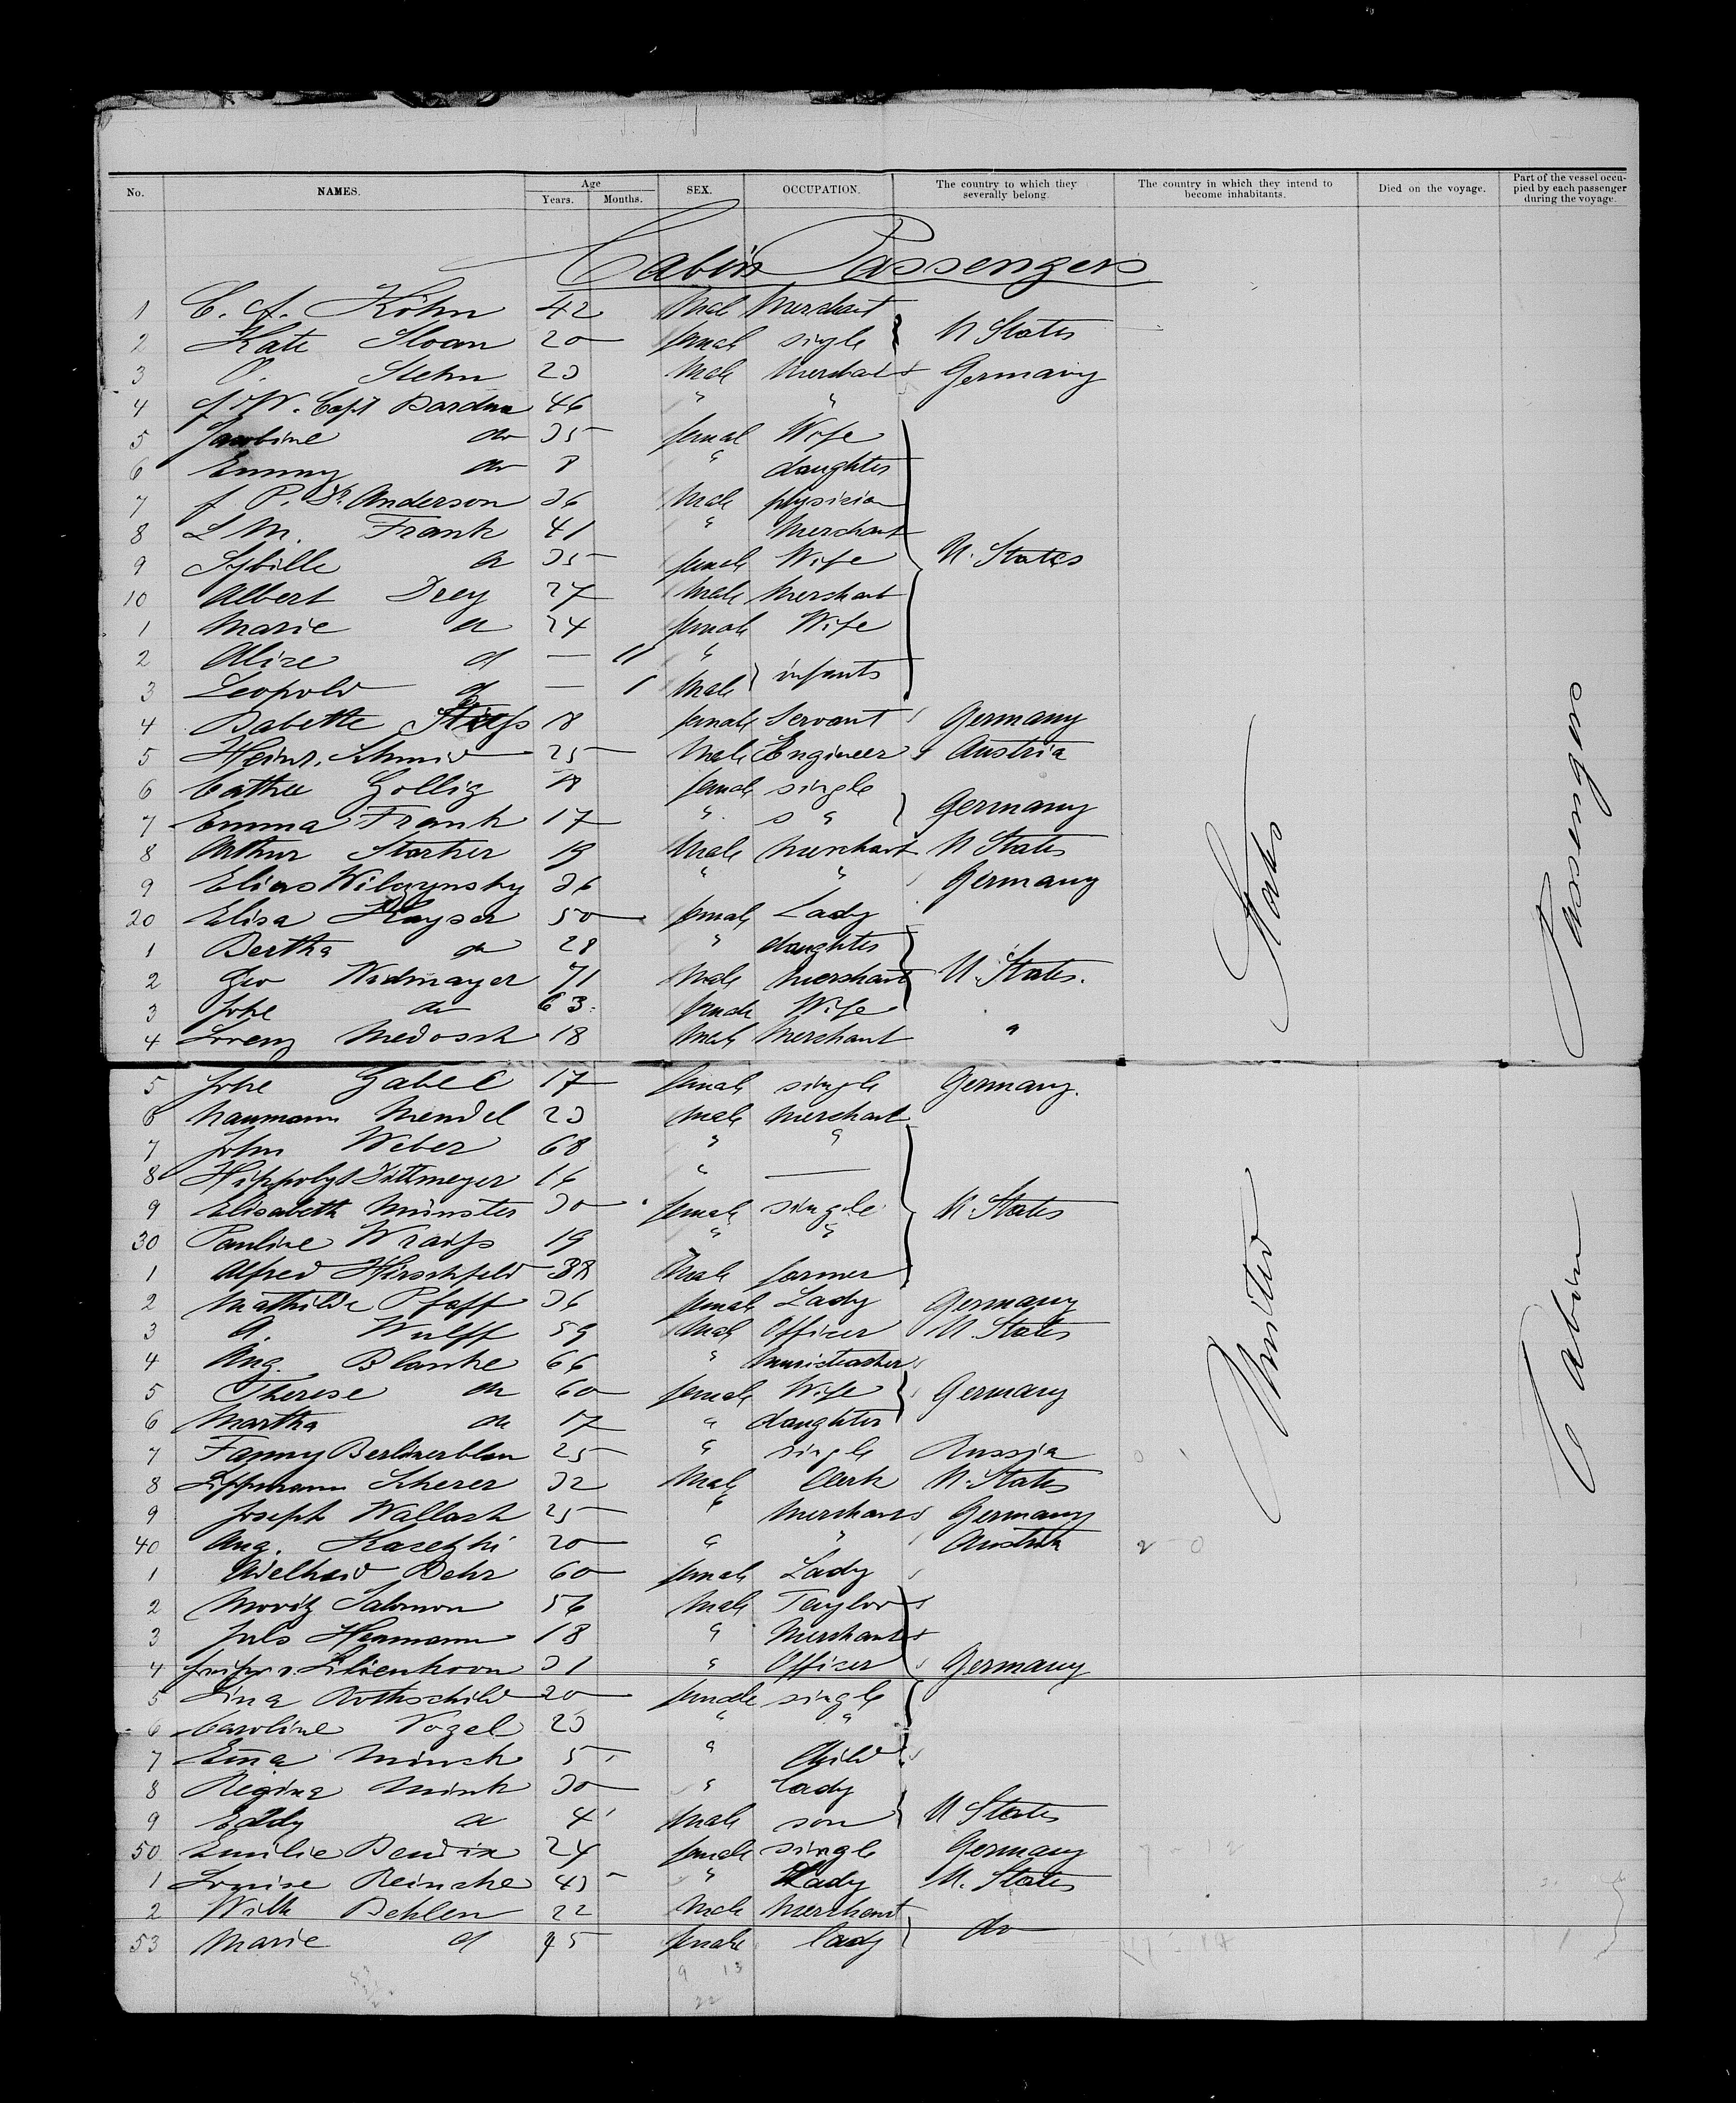 No. NAMES. Age Years. Months. SEX. OCCUPATION. The country to which they severally belong. The country in which they intend to become inhabitants. Died on the voyage. Part of the vessel occupied by each passenger during the voyage.
Cabin Passengers
1 C. A. Köhn 42 Male Merchant
2 Kate Sloan 20 female single } U States
3 O. Stehn 23 Male Merchant Germany
4 Capt Bardua 46 " "
5 Jacobine do 35 femal Wife
6 Emmy do 8 " daughter
7 J. P. Dr. Anderson 36 Male physician
8 L M. Frank 41 " Merchant
9 Sybille do 35 female Wife U. States
10 Albert Drey 27 Male Merchant
1 Marie do 24 female Wife
2 Alice do — 11 "
3 Leopold do — 1 Male } infants
4 Babette 18 female Servant Germany
5 Heinr. Schmid 25 Male Engineer Austria
6 Cathee Gollig 18 female single
7 Emma Frank 17 " " } Germany
8 Arthur Startzer 19 Male Merchant U States
9 Elias Wilczynsky 36 " " Germany
20 Elisa Kayser 50 female Lady
1 Bertha do 28 " daughter
2 Geo Widmayer 71 Male Merchant U. States.
3 Johe do 63 female Wife
4 Lorenz Medosch 18 Male Merchant "
5 Johe Gabel 17 female single Germany.
6 Naumann Mendel 23 Male Merchant
7 John Weber 68 " "
8 Hippolyt Dittmeyer 16 " —
9 Elisabeth Münster 30 female single U. States
30 Pauline Wraiss 19 " "
1 Alfred Hirschfeld 38 Male farmer
2 Mathilde Pfaff 36 female Lady Germany
3 A. Wulff 59 Male Officer U. States
4 Aug. Blanke 66 " Musicteacher
5 Therese do 60 female Wife } Germany
6 Martha do 17 " daughter
7 Fanny Berlinerblau 25 " single Russia
8 Lippmann Scherer 32 Male Clerk U. States
9 Joseph Wallach 25 " Merchant Germany
40 Aug. Kasetzki 20 " " Austria 2 0
1 Adelheid Behr 60 female Lady
2 Moritz Salomon 56 Male Taylor
3 Juls Hermann 18 " Merchant
4 Lilienhoon 31 " Officer Germany
5 Lina Rothschild 20 female single
6 Caroline Vogel 23 " "
7 Ema Minck 5 " Child
8 Regina Minck 30 " lady
9 Eddy do 4 Male son } U States
50 Emilie Bendix 24 female single Germany
1 Louise Reincke 43 " Lady U. States
2 Wilh Behlen 22 Male Merchant
53 Marie do 45 female lady } do
United States
Cabin Passengers
9 13
22